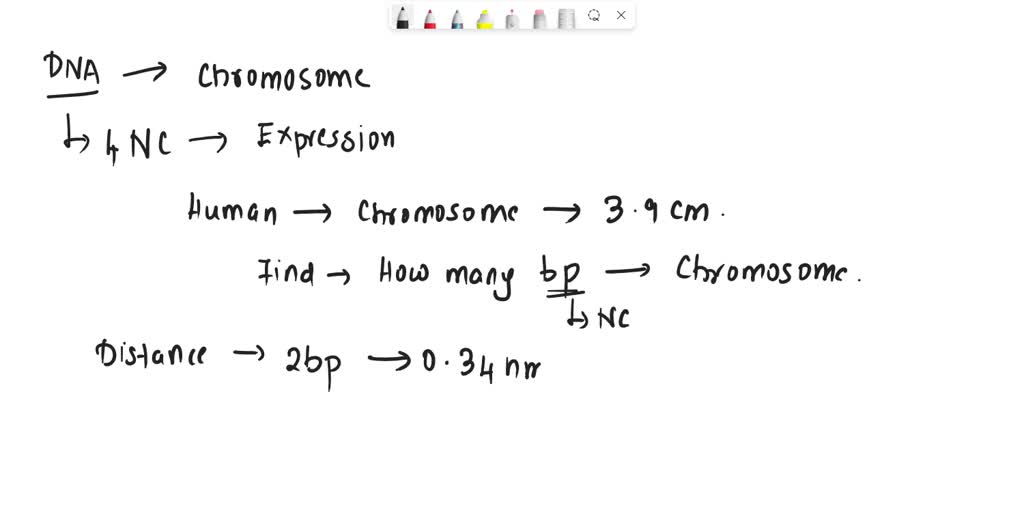 DNA → Chromosome
↳ 4 NC → Expression
Human → Chromosome → 3.9 cm.
Find → How many bp → Chromosome.
↳ NC
Distance → 2bp → 0.34 nm